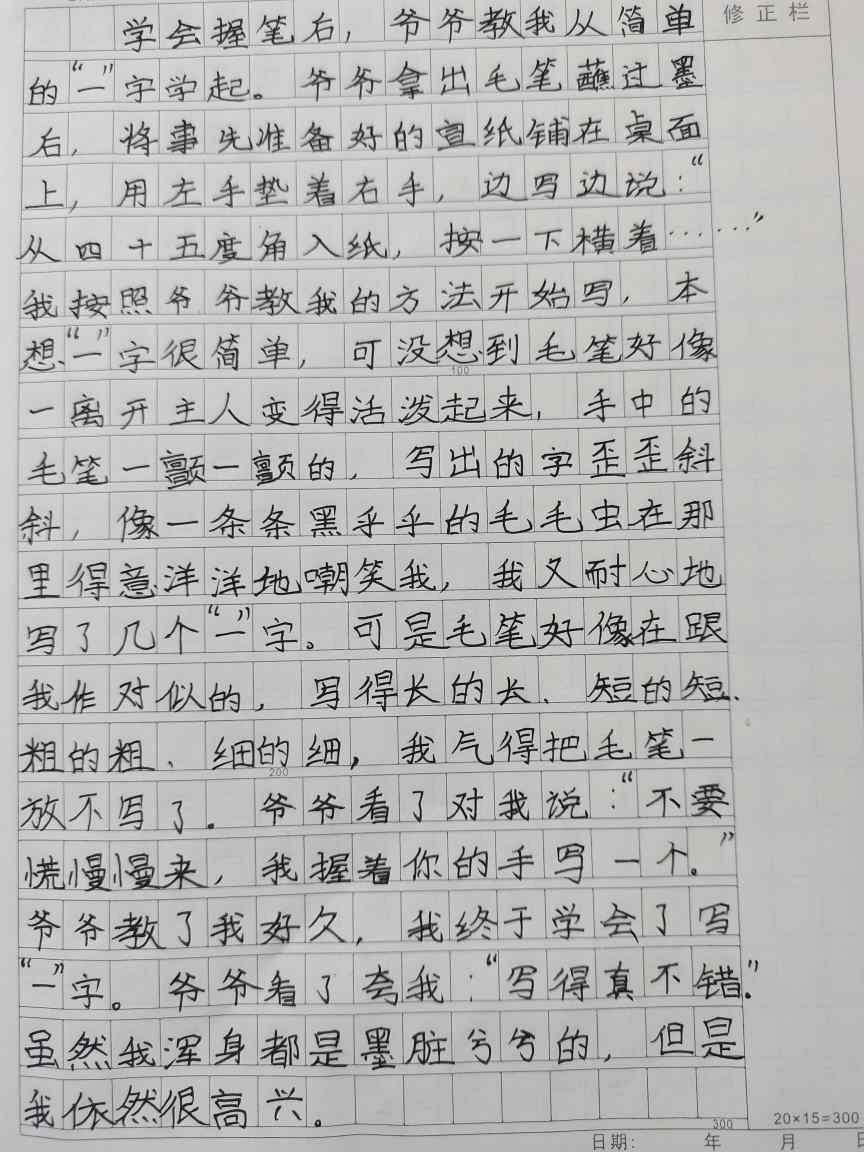 修正栏
学会握笔右，爷爷教我从简单
的“一”字学起。爷爷拿出毛笔蘸过墨
右，将事先准备好的宣纸铺在桌面
上，用左手垫着右手，边写边说：“
从四十五度角入纸，按一下横着……”
我按照爷爷教我的方法开始写，本
想“一”字很简单，可没想到毛笔好像
100
一离开主人变得活泼起来，手中的
毛笔一颤一颤的，写出的字歪歪斜
斜，像一条条黑乎乎的毛毛虫在那
里得意洋洋地嘲笑我，我又耐心地
写了几个“一”字。可是毛笔好像在跟
我作对似的，写得长的长、短的短、
粗的粗、细的细，我气得把毛笔一
200
放不写了。爷爷看了对我说：“不要
慌慢慢来，我握着你的手写一个。”
爷爷教了我好久，我终于学会了写
“一”字。爷爷看了夸我：“写得真不错。”
虽然我浑身都是墨脏兮兮的，但是
我依然很高兴。
300
20×15=300
日期： 年 月 日